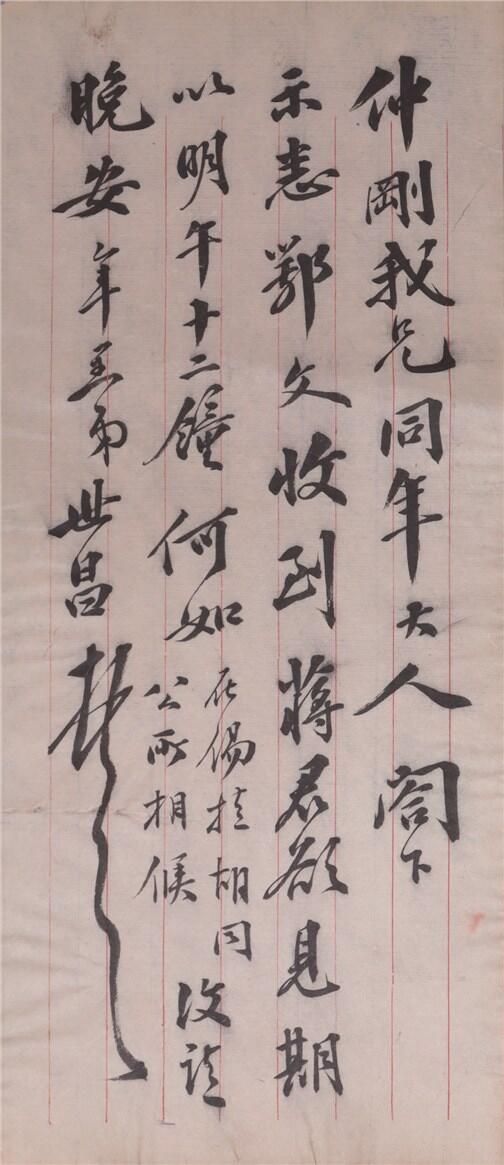 仲剛我兄同年大人閣下
示悉鄂文收到蔣君欲見期
以明午十二鐘何如在錫拉胡同
公所相候復請
晚安年愚弟世昌頓